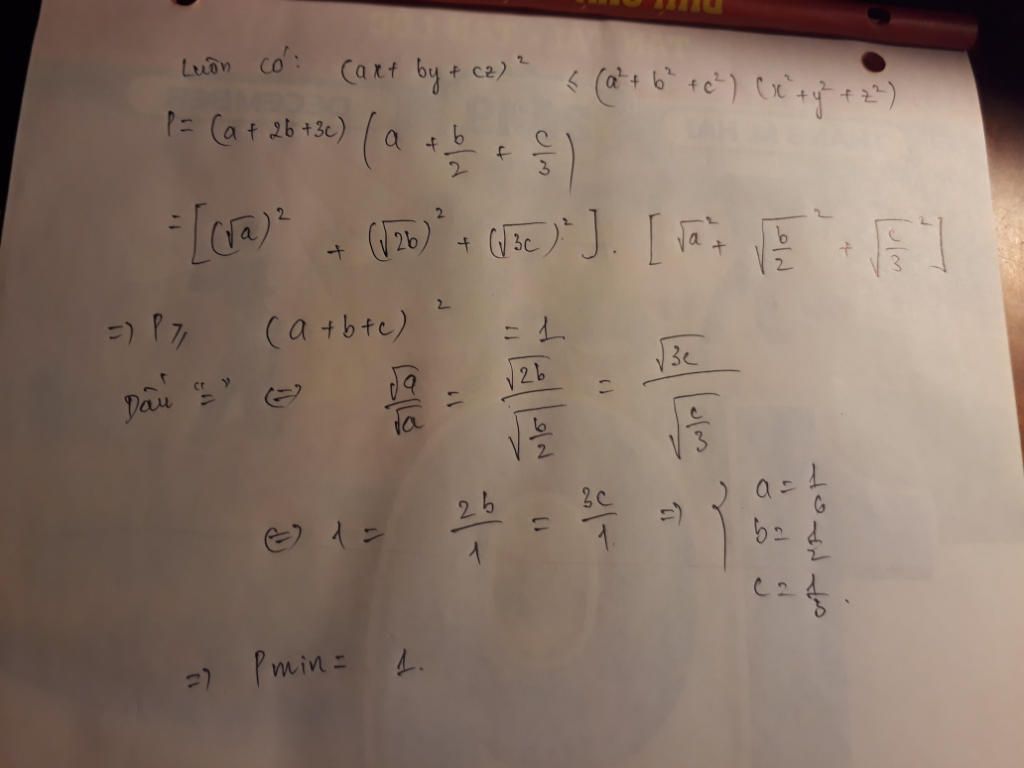 Luôn có: (ax + by + cz)² ≤ (a² + b² + c²) (x² + y² + z²)
P = (a + 2b + 3c) (a + b/2 + c/3)
= [(√a)² + (√2b)² + (√3c)²] . [√a² + √(b/2)² + √(c/3)²]
=> P ≥ (a + b + c)² = 1
Dấu "=" <=> √a/√a = √2b/√(b/2) = √3c/√(c/3)
<=> 1 = 2b/1 = 3c/1 => { a = 1/6
b = 1/2
c = 1/3 .
=> Pmin = 1.